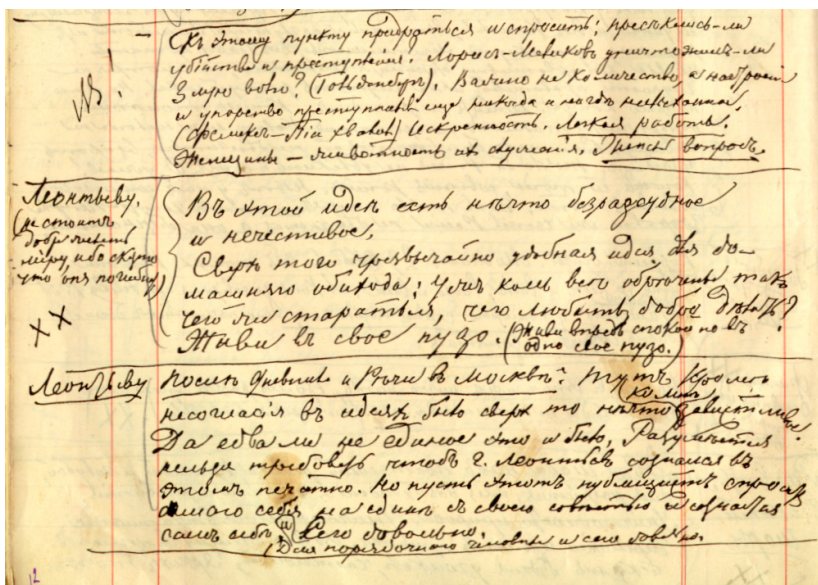 NB!
— Къ этому пункту придраться и спросить: пресѣклись-ли
убійства и преступленія. Лорисъ-Меликовъ уничтожилъ-ли
Зло? Важно не количество, а настроеніе
и упорство преступленія еще никогда и нигдѣ неслыханна.
Искренность. Легкая работа.
Женщины — Женскій вопросъ.
Леонтьеву.
(не стоитъ
добра желать
міру, ибо сказано
что онъ погибнетъ)
XX
Въ этой идеѣ есть нѣчто безразсудное
и нечестивое.
Сверхъ того чрезвычайно удобная идея для до-
машняго обихода: ужъ коль всѣ обречены такъ
чего же стараться, чего любить, добро дѣлать?
Живи въ свое пузо. (Живи впредь спокойно въ
одно свое пузо.)
Леонтьеву
послѣ Дневника и Рѣчи въ Москвѣ. Тутъ кромѣ
несогласія въ идеяхъ было сверхъ то нѣчто ко мнѣ завистливое.
Да едва ли не единое это и было. Разумѣется
нельзя требовать чтобъ г. Леонтьевъ сознался въ
этомъ печатно. Но пусть этотъ публицистъ спроситъ
самого себя наединѣ съ своею совѣстью и сознается
самъ себѣ: и сего довольно.
(Для порядочнаго человѣка и сего довольно.
12